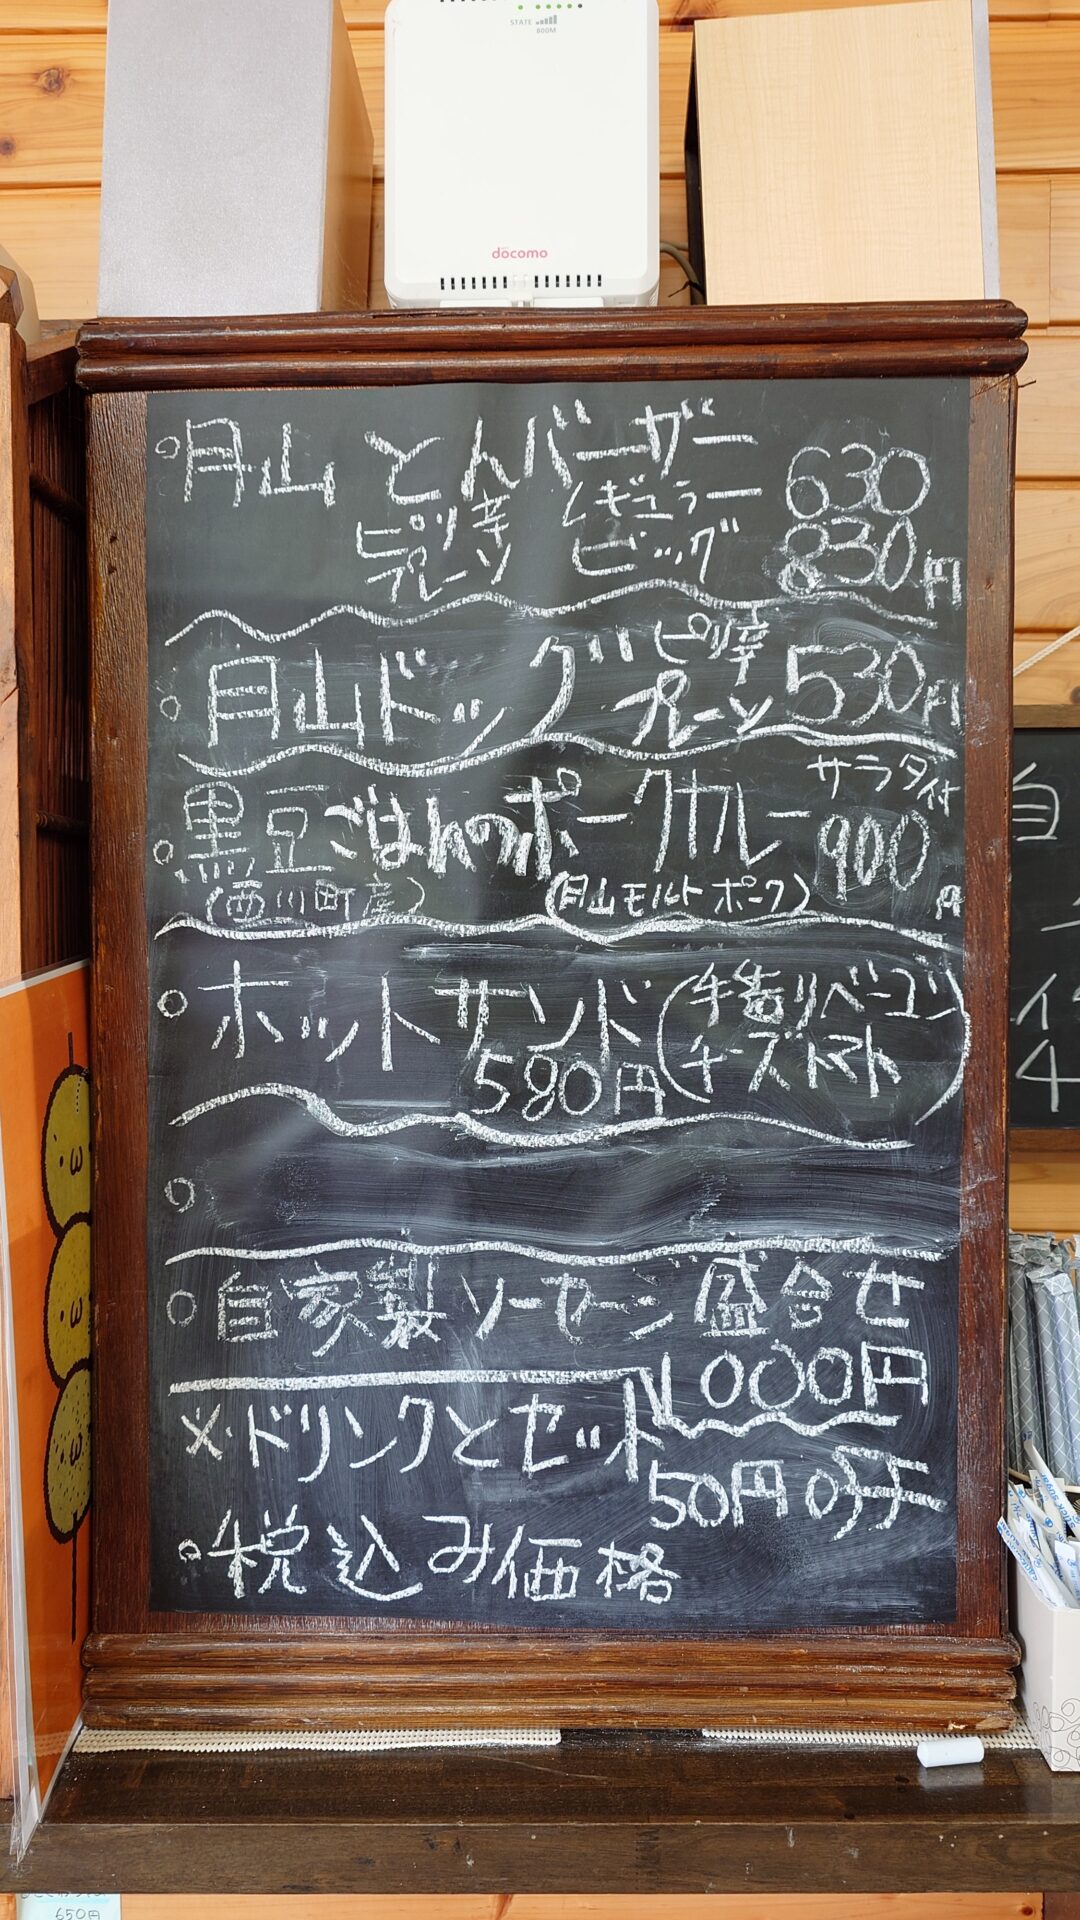 STATE
800M
docomo
○月山 とんバーガー
ピリ辛 レギュラー 630
プレーン ビッグ 830円
○月山ドッグ ピリ辛 530円
プレーン
サラダ付
○黒豆ごはんのポークカレー 900円
(西川町産) (月山モルトポーク)
○ホットサンド (手造りベーコン
チーズトマト)
580円
○
○自家製ソーセージ盛合せ
1000円
※ドリンクとセット
50円引き
○税込み価格
自
イ
4
650円